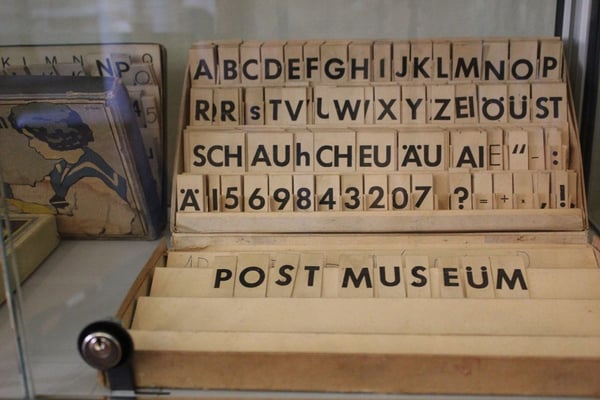 A B C D E F G H I J K L M N O P
R R s T V U W X Y Z EI Ö Ü ST
SCH AU h CH EU ÄU AI E “ - :
Ä I 5 6 9 8 4 3 2 0 7 ? = + × , !
POST MUSEÜM
K L M N NP O